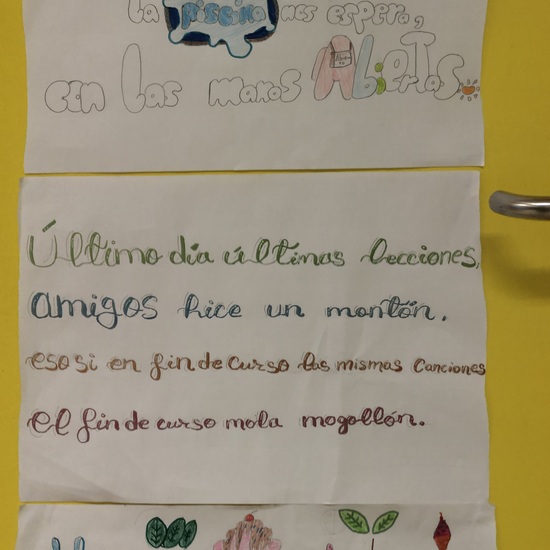 la piscina nos espera,
con las manos Abiertas
Último día últimas lecciones,
amigos hice un montón.
eso si en fin de curso las mismas canciones
el fin de curso mola mogollón.